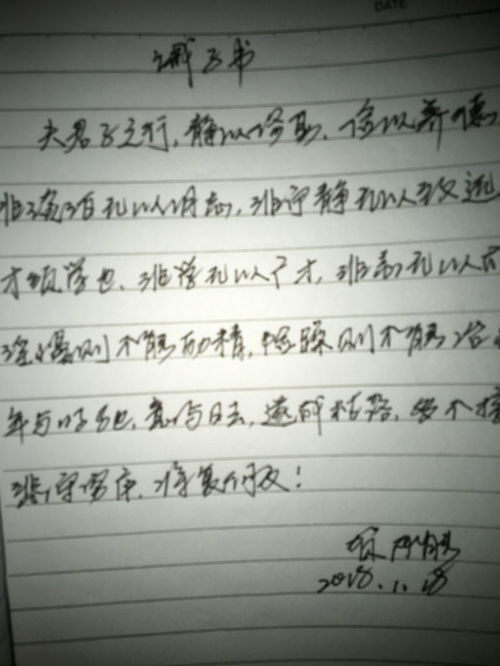 DATE
诫子书
夫君子之行，静以修身，俭以养德，
非澹泊无以明志，非宁静无以致远
才须学也、非学无以广才，非志无以成
淫慢则不能励精，险躁则不能治
年与时驰，意与日去，遂成枯落，多不接
悲守穷庐，将复何及！
2018.1.18